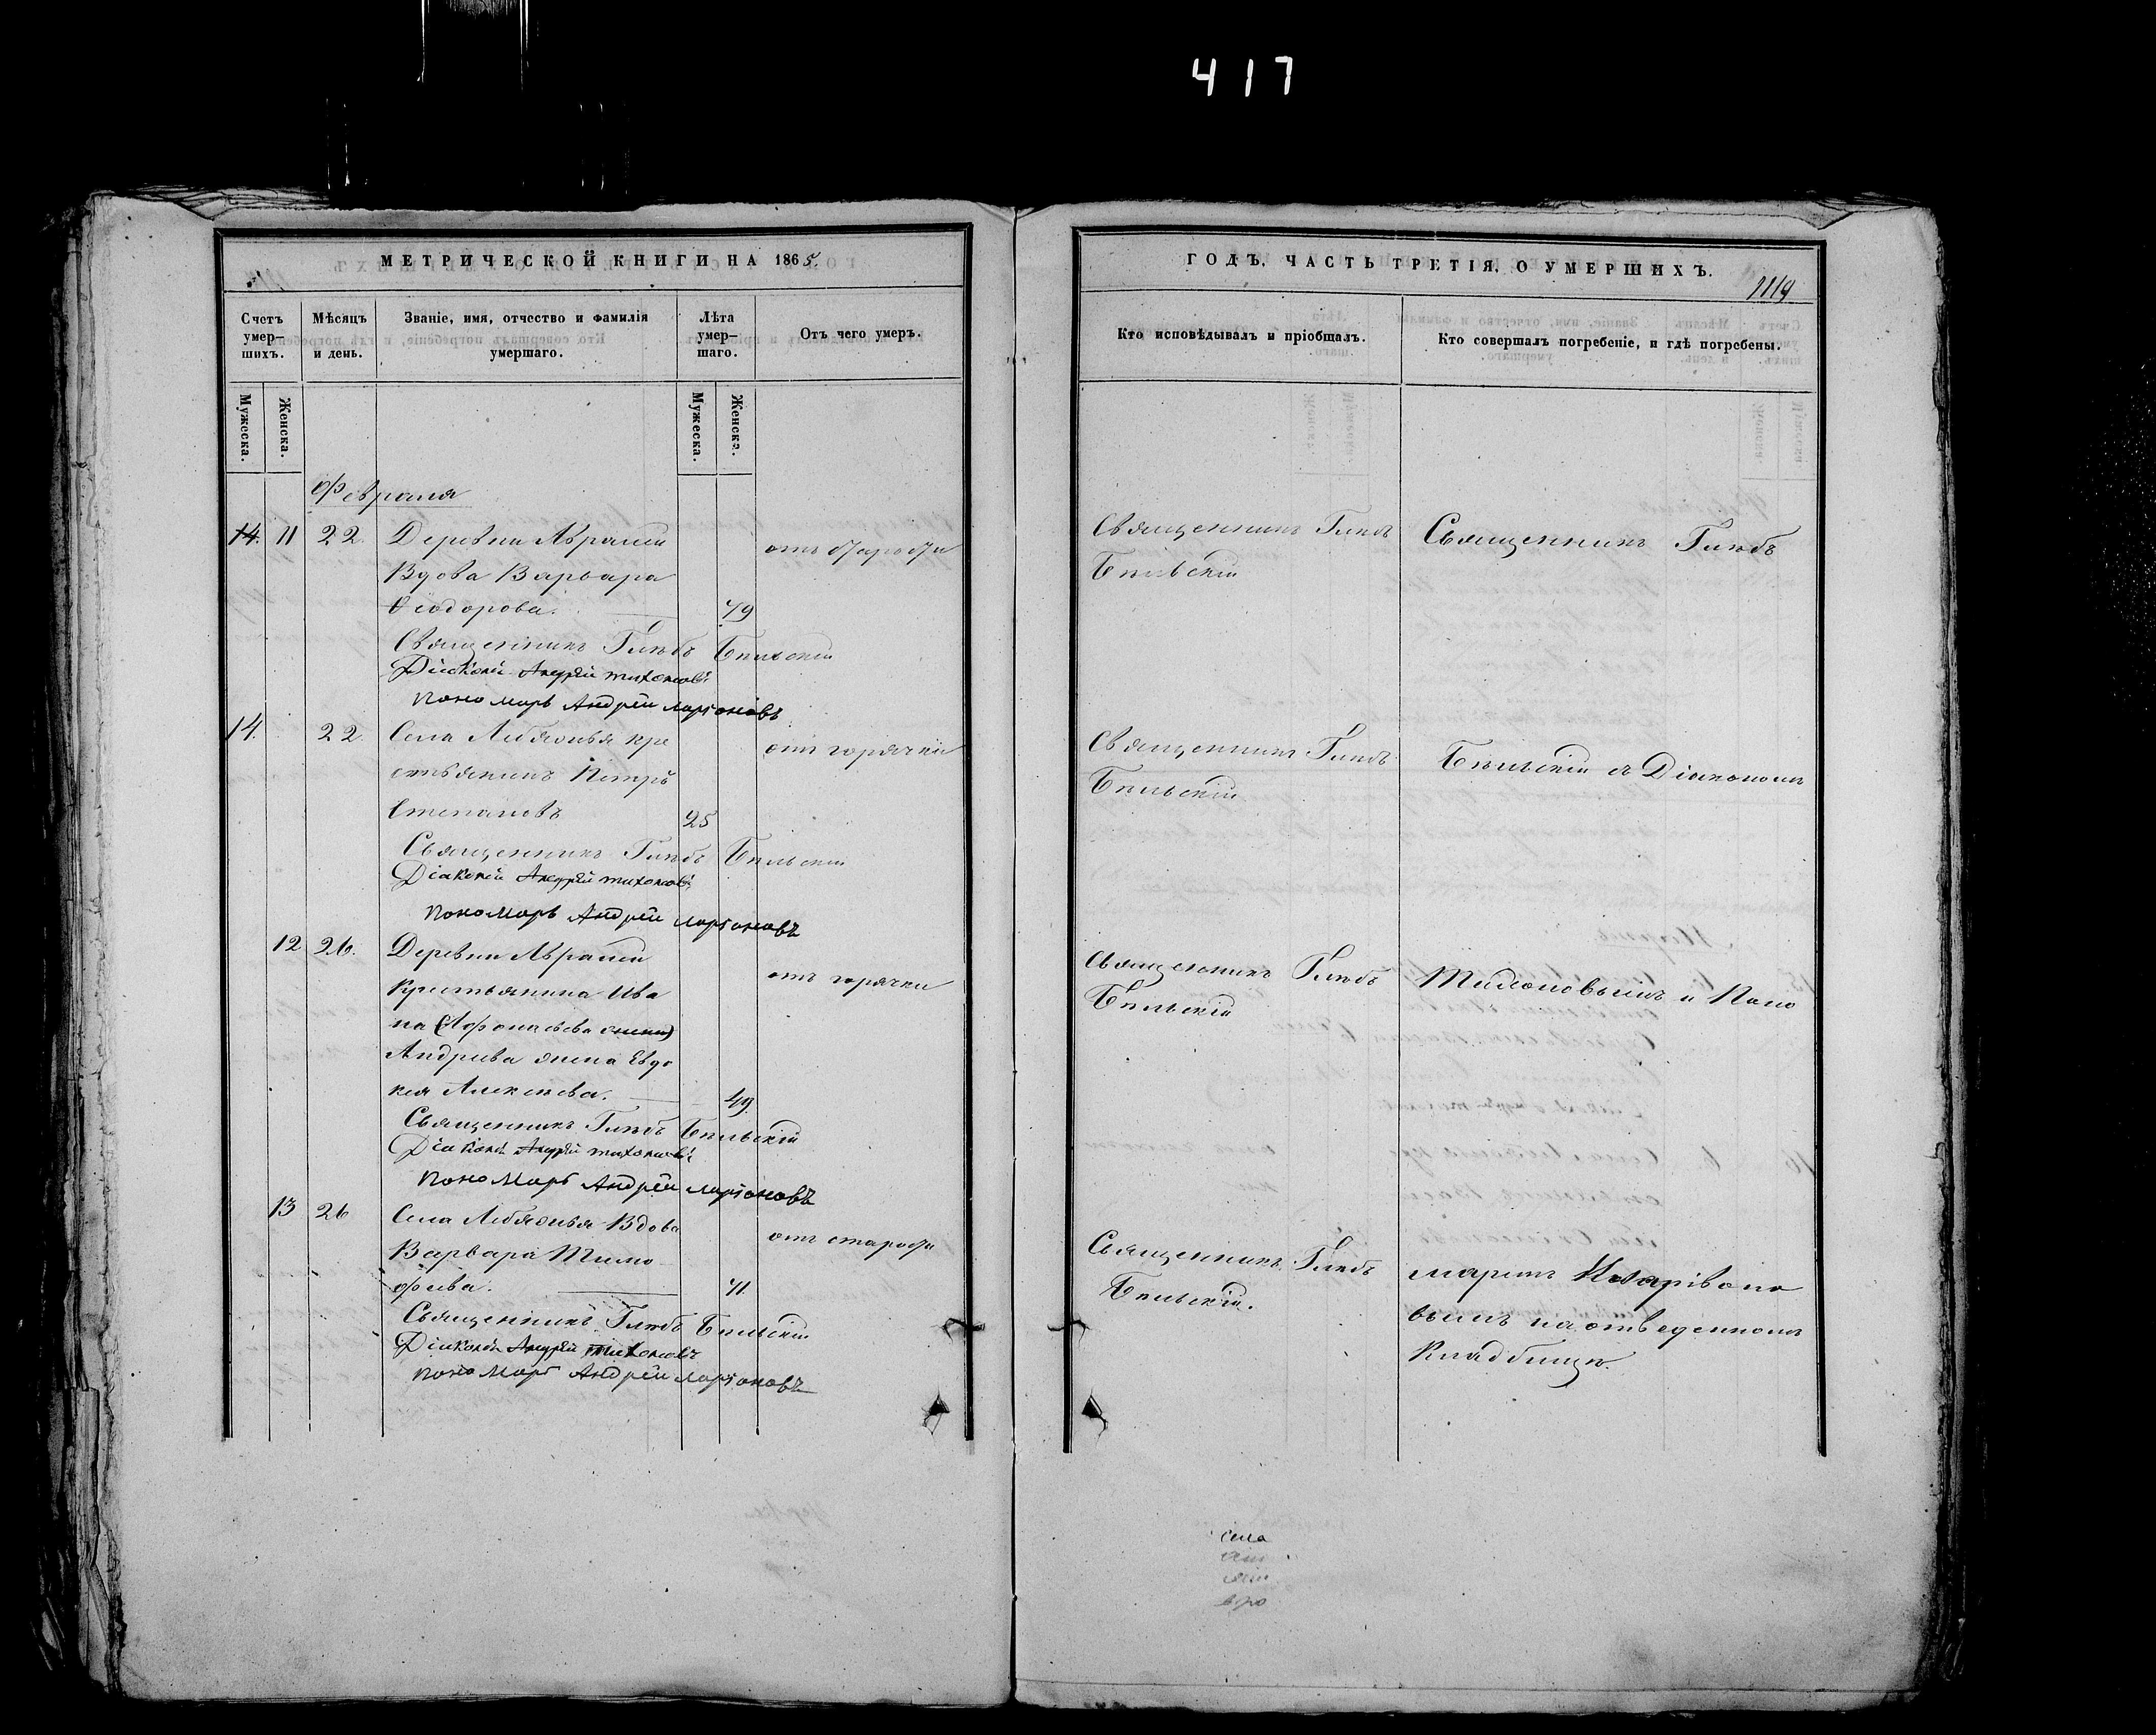 417
МЕТРИЧЕСКОЙ КНИГИ НА 1865.
Счетъ умер-шихъ.
Мѣсяцъ и день.
Званіе, имя, отчество и фамилія умершаго.
Лѣта умер-шаго.
Отъ чего умеръ.
Мужеска.
Женска.
Мужеска.
Женска.
Февраля
14. 11 22. Деревни
Вдова Варвара
Ѳеодорова. 79
отъ старости
Священникъ Глѣбъ Бѣльскій
Діаконъ Андрей Тихоновъ
Пономарь Андрей Ларіоновъ
14. 22. Села кре
стьянинъ Петръ
Степановъ 25
отъ горячки
Священникъ Глѣбъ Бѣльскій
Діаконъ Андрей Тихоновъ
Пономарь Андрей Ларіоновъ
12 26. Деревни
Крестьянина Ива
на
Андреева жена Евдо
кія Алексѣева. 49
отъ горячки
Священникъ Глѣбъ Бѣльскій
Діаконъ Андрей Тихоновъ
Пономарь Андрей Ларіоновъ
13 26 Села Вдова
Варвара Тимо
фѣева. 71.
отъ старости
Священникъ Глѣбъ Бѣльскій
Діаконъ Андрей Тихоновъ
Пономарь Андрей Ларіоновъ
ГОДЪ. ЧАСТЬ ТРЕТІЯ, О УМЕРШИХЪ.
1119
Кто исповѣдывалъ и пріобщалъ.
Кто совершалъ погребеніе, и гдѣ погребены.
Священникъ Глѣбъ
Бѣльскій
Священникъ Глѣбъ
Бѣльскій
Священникъ Глѣбъ
Бѣльскій
Священникъ Глѣбъ
Бѣльскій.
Священникъ Глѣбъ
Бѣльскій съ Діакономъ
Тихоновымъ и Поно
маремъ
вымъ на отведенномъ
Кладбищѣ.
села